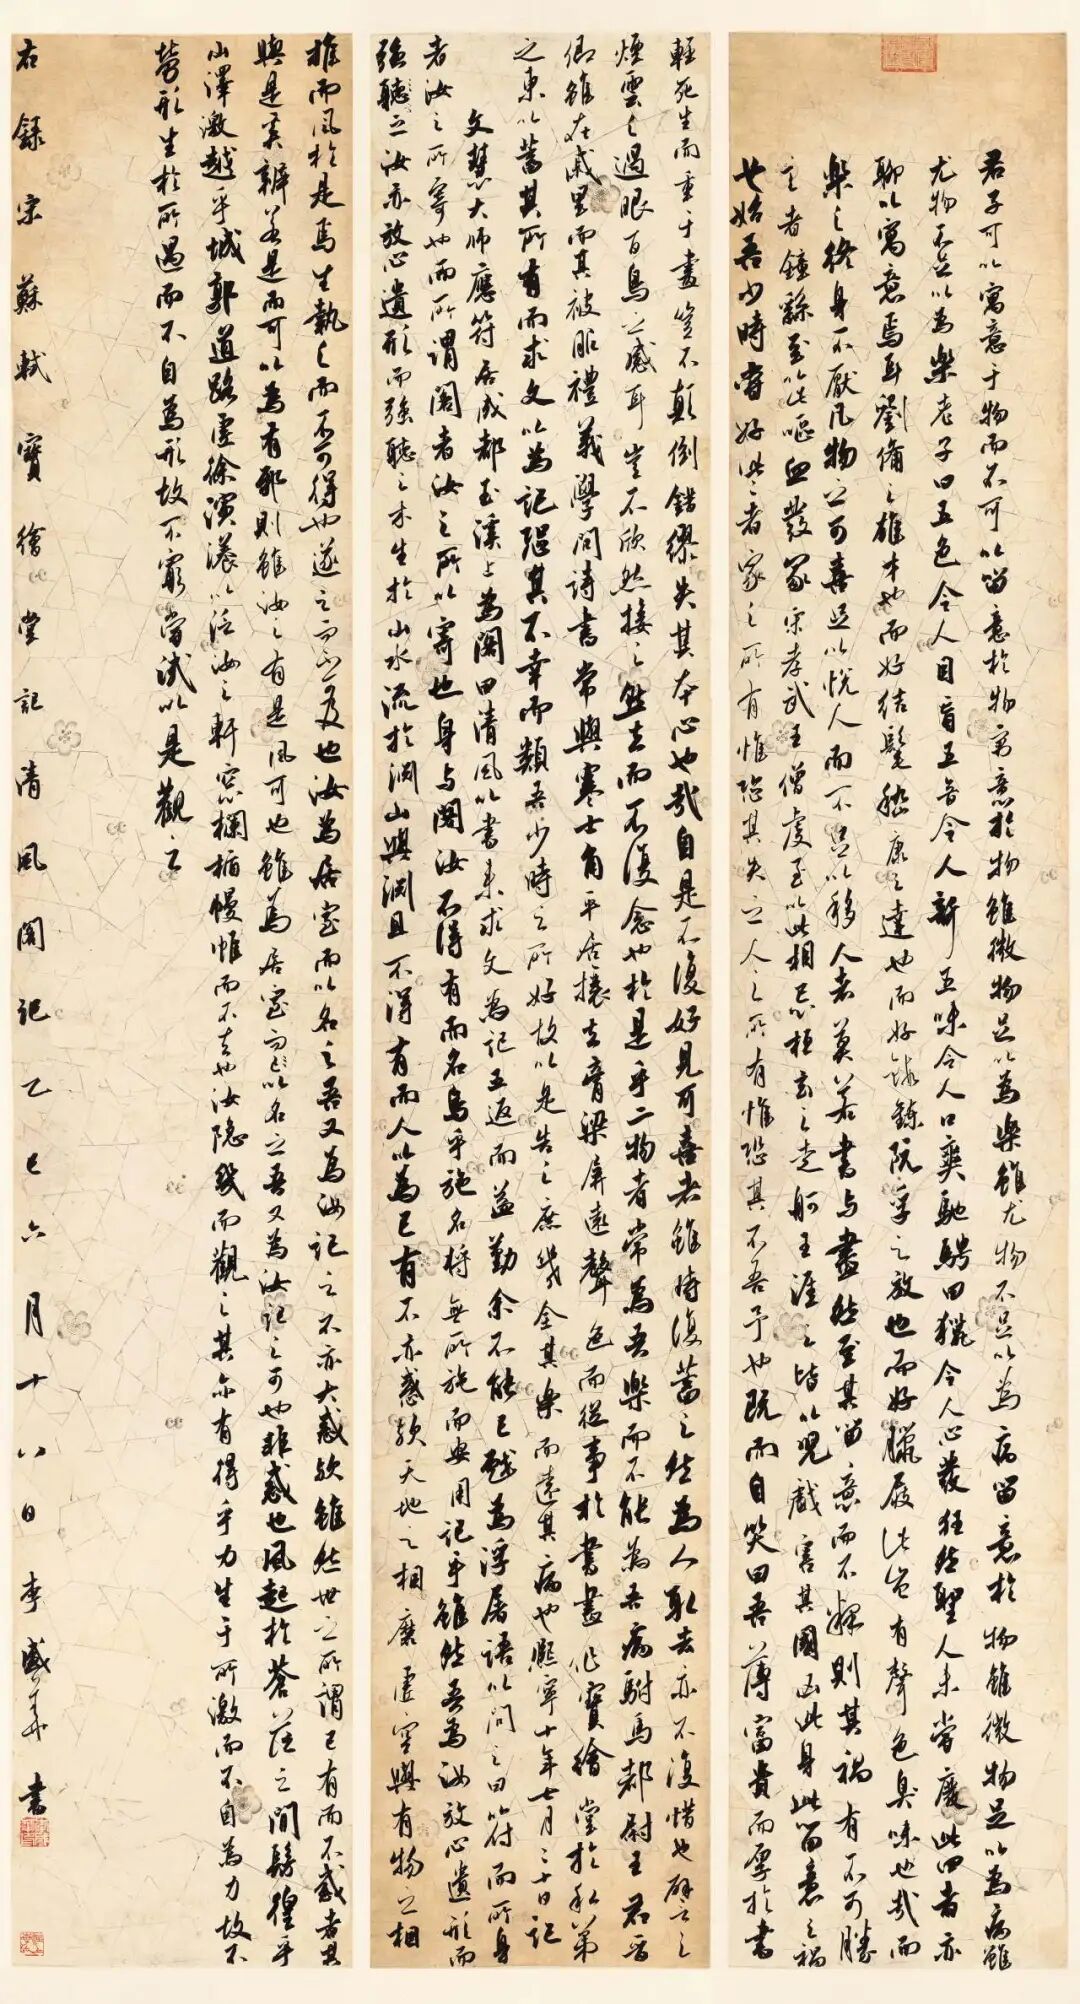 君子可以寓意于物而不可以留意於物寓意於物雖微物足以為樂雖尤物不足以為病留意於物雖微物足以為病雖
尤物不足以為樂老子曰五色令人目盲五音令人聾五味令人口爽馳騁田獵令人心發狂然聖人未嘗廢此四者亦
聊以寓意焉耳劉備之雄才也而好結髦嵇康之達也而好鍛鍊阮孚之放也而好臘屐此豈有聲色臭味也哉而
樂之終身不厭凡物之可喜足以悅人而不足以移人者莫若書与畫然至其留意而不釋則其禍有不可勝
言者鍾繇至以此嘔血發冢宋孝武王僧虔至以此相忌桓玄之走舸王涯之皆以兒戲害其國凶此身此留意之禍
也始吾少時嘗好此二者家之所有惟恐其失之人之所有惟恐其不吾予也既而自笑曰吾薄富貴而厚於書
輕死生而重于畫豈不顛倒錯繆失其本心也哉自是不復好見可喜者雖時復蓄之然為人取去亦不復惜也譬之
煙雲之過眼百鳥之感耳豈不欣然接之然去而不復念也於是乎二物者常為吾樂而不能為吾病駙馬都尉王君晉
卿雖在戚里而其被服禮義學問詩書常與寒士角平居攘去膏粱屏遠聲色而從事於書畫作寶繪堂於私第
之東以蓄其所有而求文以為記恐其不幸而類吾少時之所好故以是告之庶幾全其樂而遠其病也熙寧十年七月二十日記
文慧大師應符居成都玉溪上為閣曰清風以書來求文為記五返而益勤余不能已戲為浮屠語以問之曰符而所身
者汝之所寄也而所謂閣者汝之所以寄也身与閣汝不得有而名烏乎施名將無所施而安用記乎雖然吾為汝放心遺形而
強聽之汝亦放心遺形而強聽之木生於山水流於淵山與淵且不得有而人以為已有不亦惑歟天地之相磨虛空與有物之相
推而風於是焉生執之而不可得也逐之而不及也汝為居室而以名之吾又為汝記之不亦大惑歟雖然世之所謂已有而不惑者其
與是奚辨若是而可以為有邪則雖汝之有是風可也雖為居室而以名之吾又為汝記之可也非惑也風起於蒼茫之間彷徨乎
山澤激越乎城郭道路虛徐演漾以泛汝之軒窓欄楯幔帷而不去也汝隐几而觀之其亦有得乎力生于所激而不自為力故不
勞形生於所遇而不自為形故不窮嘗試以是觀之
右錄宋蘇軾寶繪堂記清風閣記乙巳六月十八日李盛華書